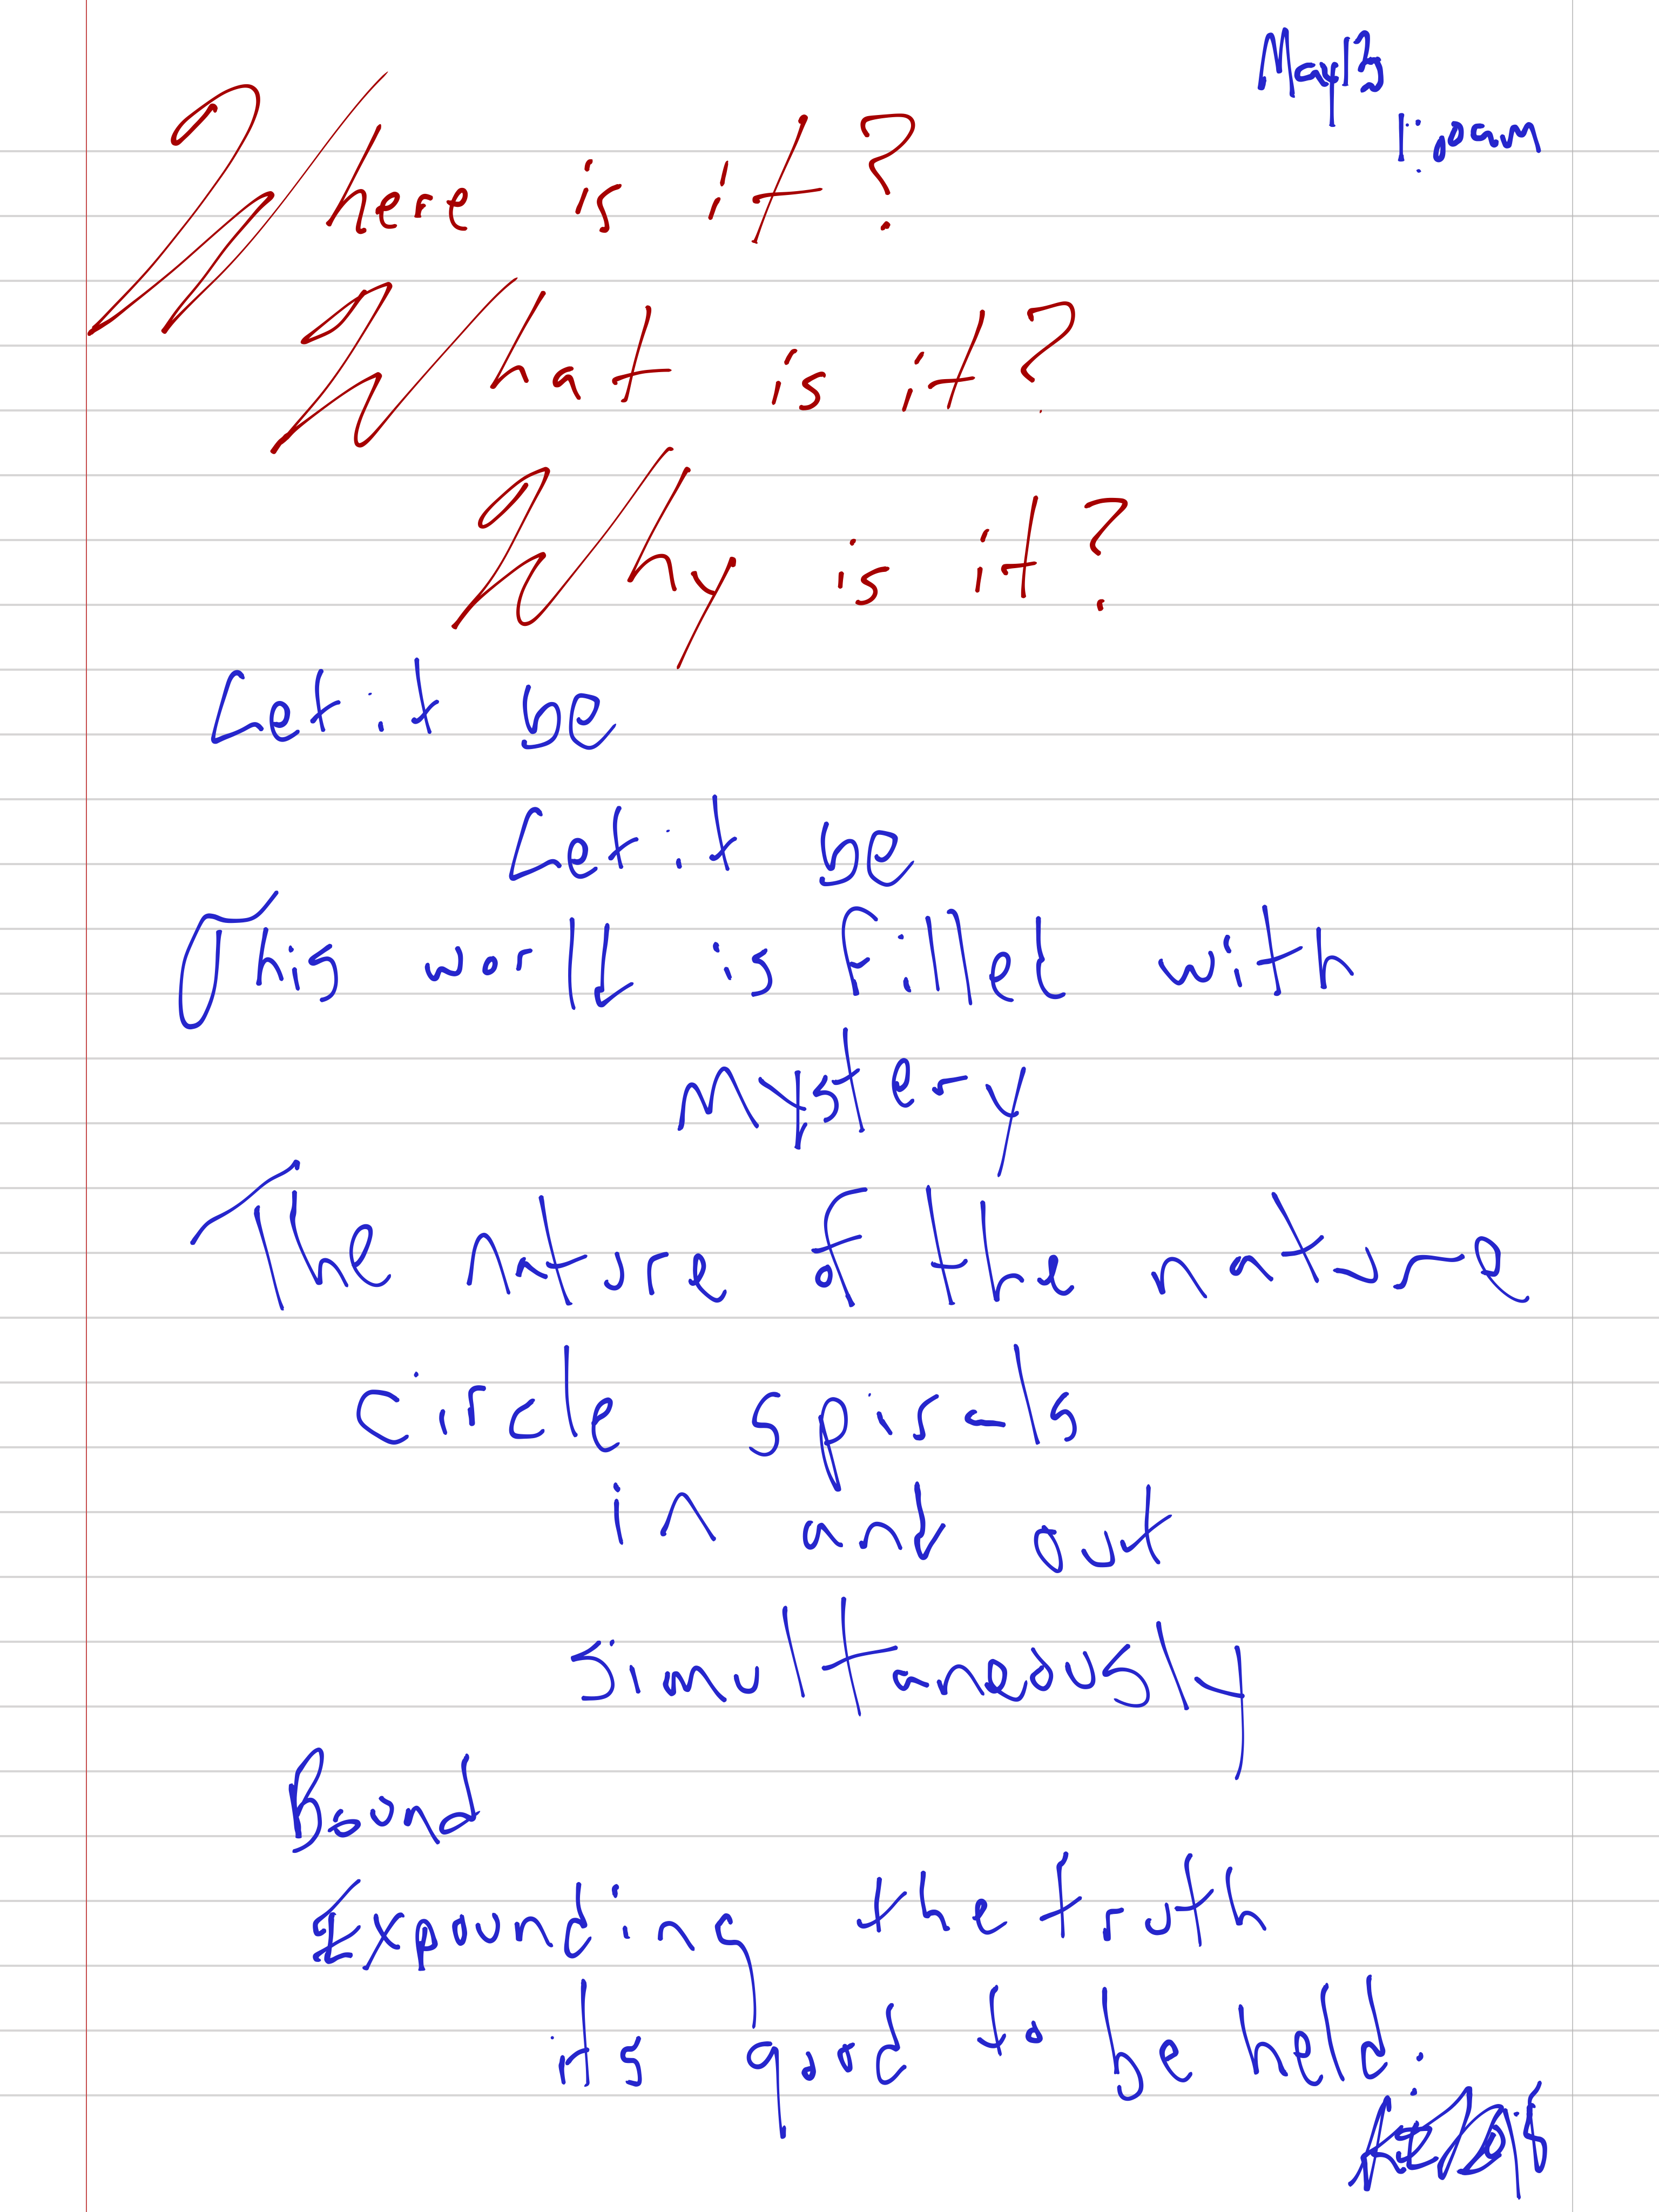 May 13
Where is it?
What is it?
Why is it?
Let it be
Let it be
This world is filled with
mystery
The nature of the nature
circle spirals
in and out
simultaneously
Bound
Expounding the truth
its good to be held.